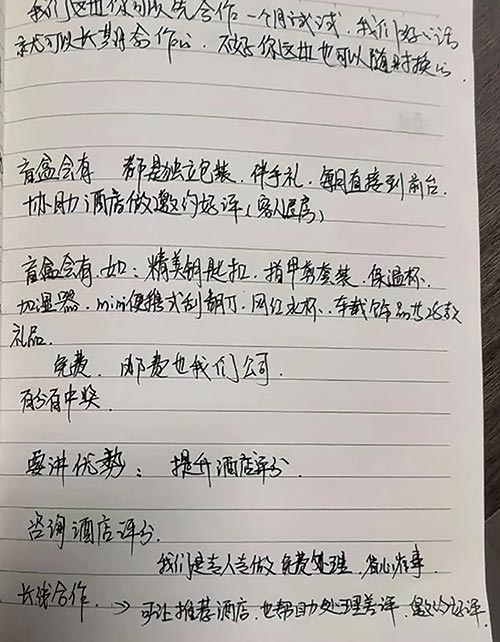 我们这边你可以先合作一个月试试,我们好的话
就可以长期合作的,不好你这边也可以随时换的
盲盒会有 都是独立包装、伴手礼、每月直接到前台、
协助酒店做邀约好评(客人居房)
盲盒会有、如:精美钥匙扣、指甲剪套装、保温杯、
加湿器、mini便携式刮胡刀、网红水杯、车载饰品共26款
礼品、
免费、邮费也我们公司、
百分百中奖、
要讲优势: 提升酒店评分、
咨询酒店评分、
我们是专人专做 免费处理、省心省事
长线合作、→ 可让推荐酒店、也帮助处理差评、邀约好评、